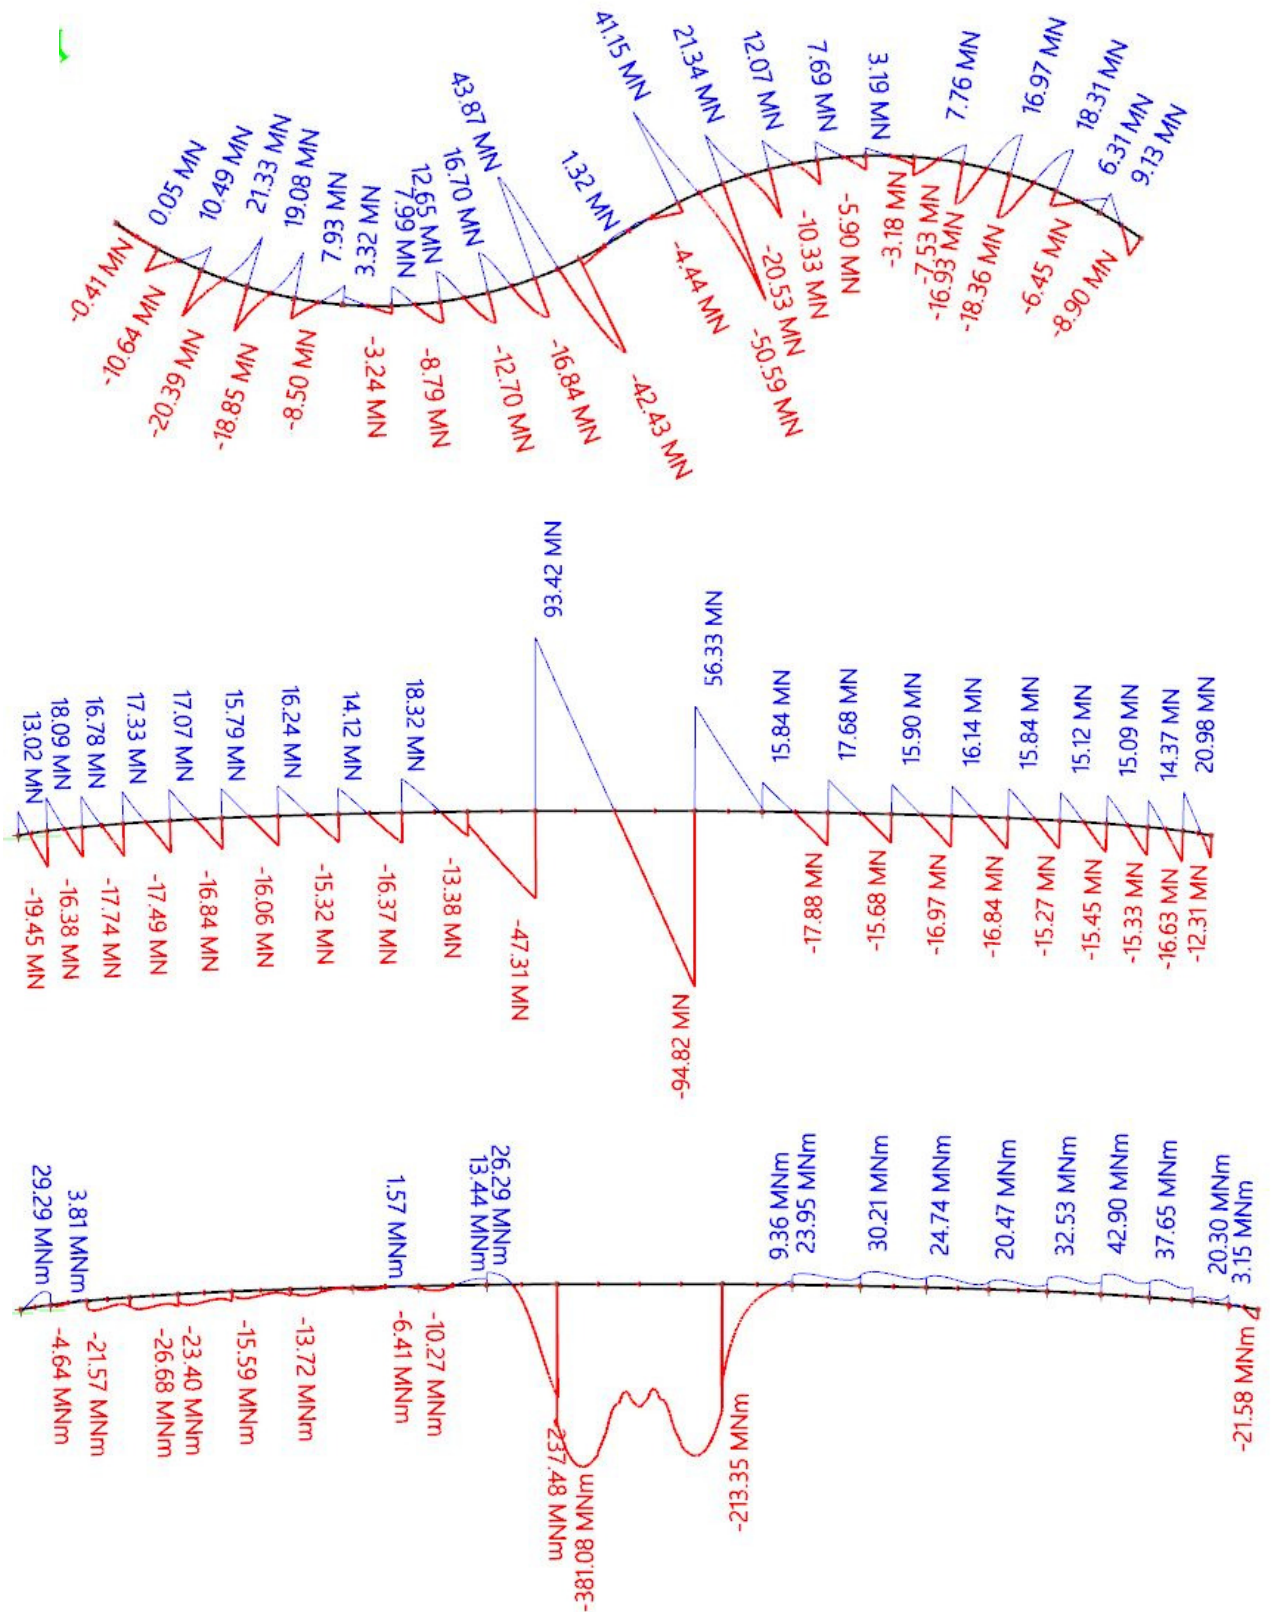 0.05 MN
10.49 MN
21.33 MN
19.08 MN
7.93 MN
3.32 MN
7.99 MN
12.65 MN
16.70 MN
43.87 MN
1.32 MN
41.15 MN
21.34 MN
12.07 MN
7.69 MN
3.19 MN
7.76 MN
16.97 MN
18.31 MN
6.31 MN
9.13 MN
-0.41 MN
-10.64 MN
-20.39 MN
-18.85 MN
-8.50 MN
-3.24 MN
-8.79 MN
-12.70 MN
-16.84 MN
-42.43 MN
-4.44 MN
-50.59 MN
-20.53 MN
-10.33 MN
-5.90 MN
-3.18 MN
-7.53 MN
-16.93 MN
-18.36 MN
-6.45 MN
-8.90 MN
13.02 MN
18.09 MN
16.78 MN
17.33 MN
17.07 MN
15.79 MN
16.24 MN
14.12 MN
18.32 MN
93.42 MN
56.33 MN
15.84 MN
17.68 MN
15.90 MN
16.14 MN
15.84 MN
15.12 MN
15.09 MN
14.37 MN
20.98 MN
-19.45 MN
-16.38 MN
-17.74 MN
-17.49 MN
-16.84 MN
-16.06 MN
-15.32 MN
-16.37 MN
-13.38 MN
-47.31 MN
-94.82 MN
-17.88 MN
-15.68 MN
-16.97 MN
-16.84 MN
-15.27 MN
-15.45 MN
-15.33 MN
-16.63 MN
-12.31 MN
29.29 MNm
3.81 MNm
1.57 MNm
13.44 MNm
26.29 MNm
9.36 MNm
23.95 MNm
30.21 MNm
24.74 MNm
20.47 MNm
32.53 MNm
42.90 MNm
37.65 MNm
20.30 MNm
3.15 MNm
-4.64 MNm
-21.57 MNm
-26.68 MNm
-23.40 MNm
-15.59 MNm
-13.72 MNm
-6.41 MNm
-10.27 MNm
-237.48 MNm
-381.08 MNm
-213.35 MNm
-21.58 MNm